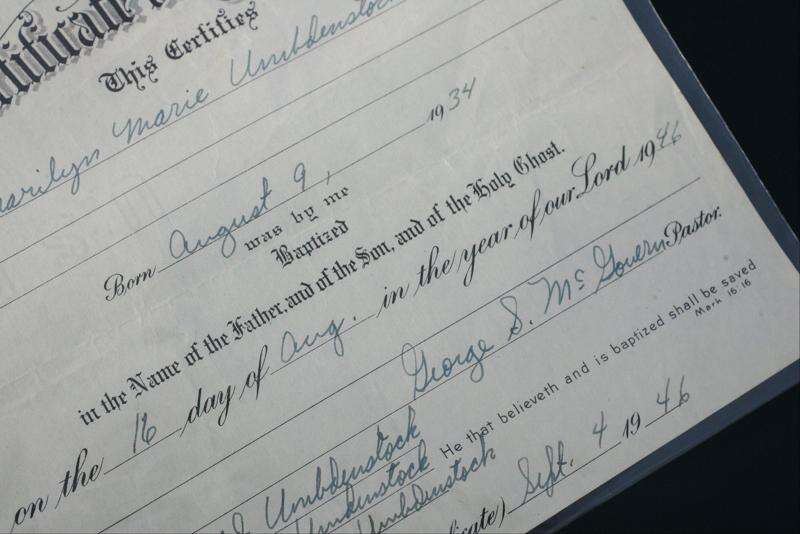 This Certifies
Marilyn Marie Umbdenstock
Born August 9, 1934
was by me
Baptized
in the Name of the Father, and of the Son, and of the Holy Ghost.
on the 16 day of Aug. in the year of our Lord 1946
George S. McGovern Pastor.
He that believeth and is baptized shall be saved
Mark 16.16
Umbdenstock
Umbdenstock
Umbdenstock
Sept. 4 1946